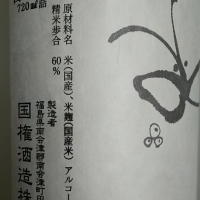 720ml詰
原材料名 米(国産)、米麹(国産米) アルコー
精米歩合 60%
製造者
福島県南会津郡南会津町田
国権酒造株